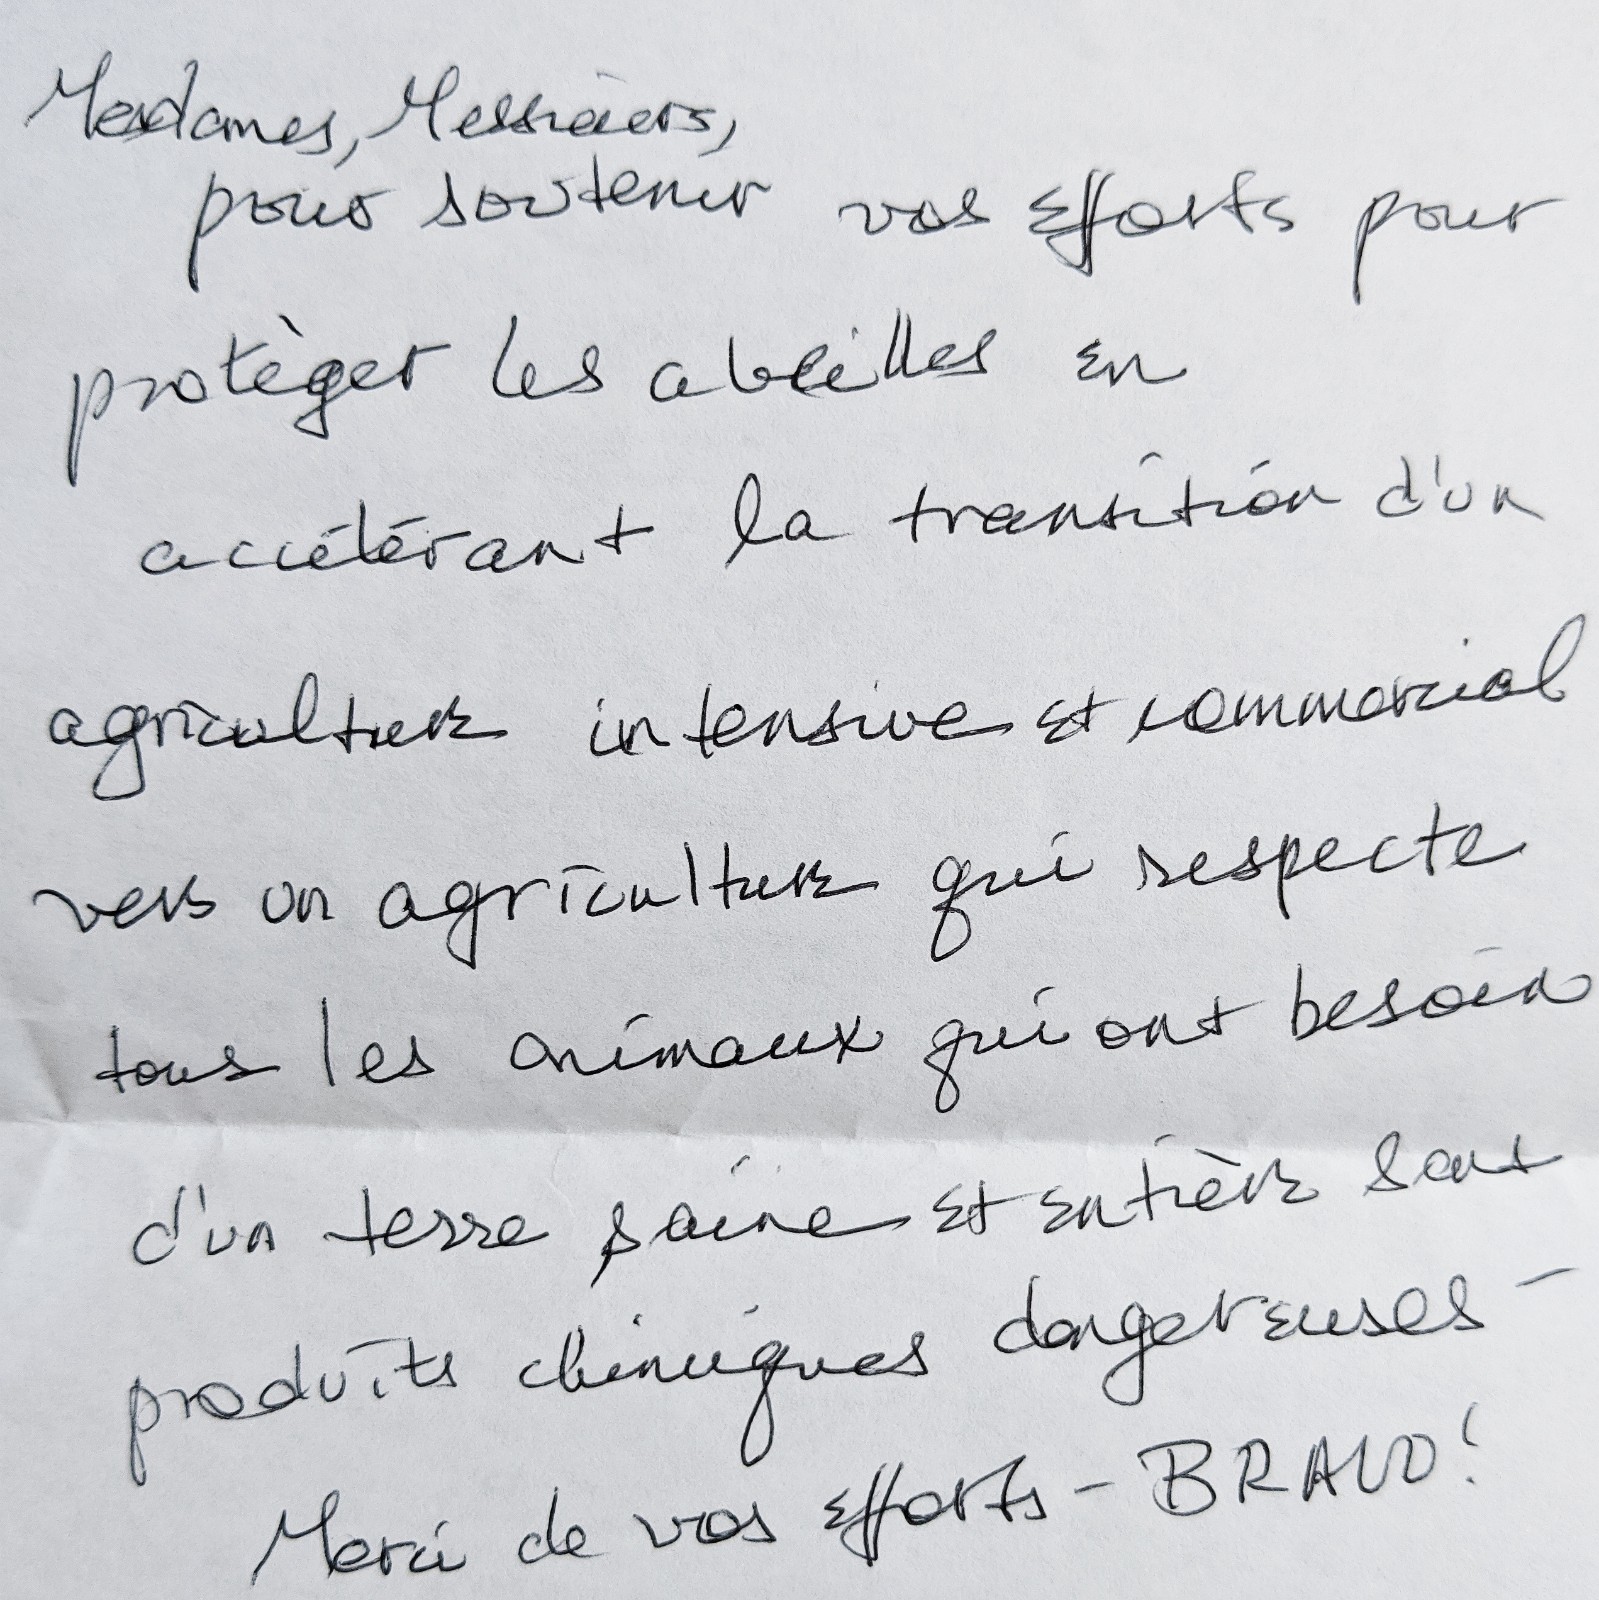 Mesdames, Messieurs,
pour soutenir vos efforts pour
protèger les abeilles en
accélérant la transition d'un
agriculture intensive et commercial
vers un agriculture qui respecte
tous les animaux qui ont besoin
d'un terre saine et entière sans
produits chimiques dangereuses –
Merci de vos efforts – BRAVO!